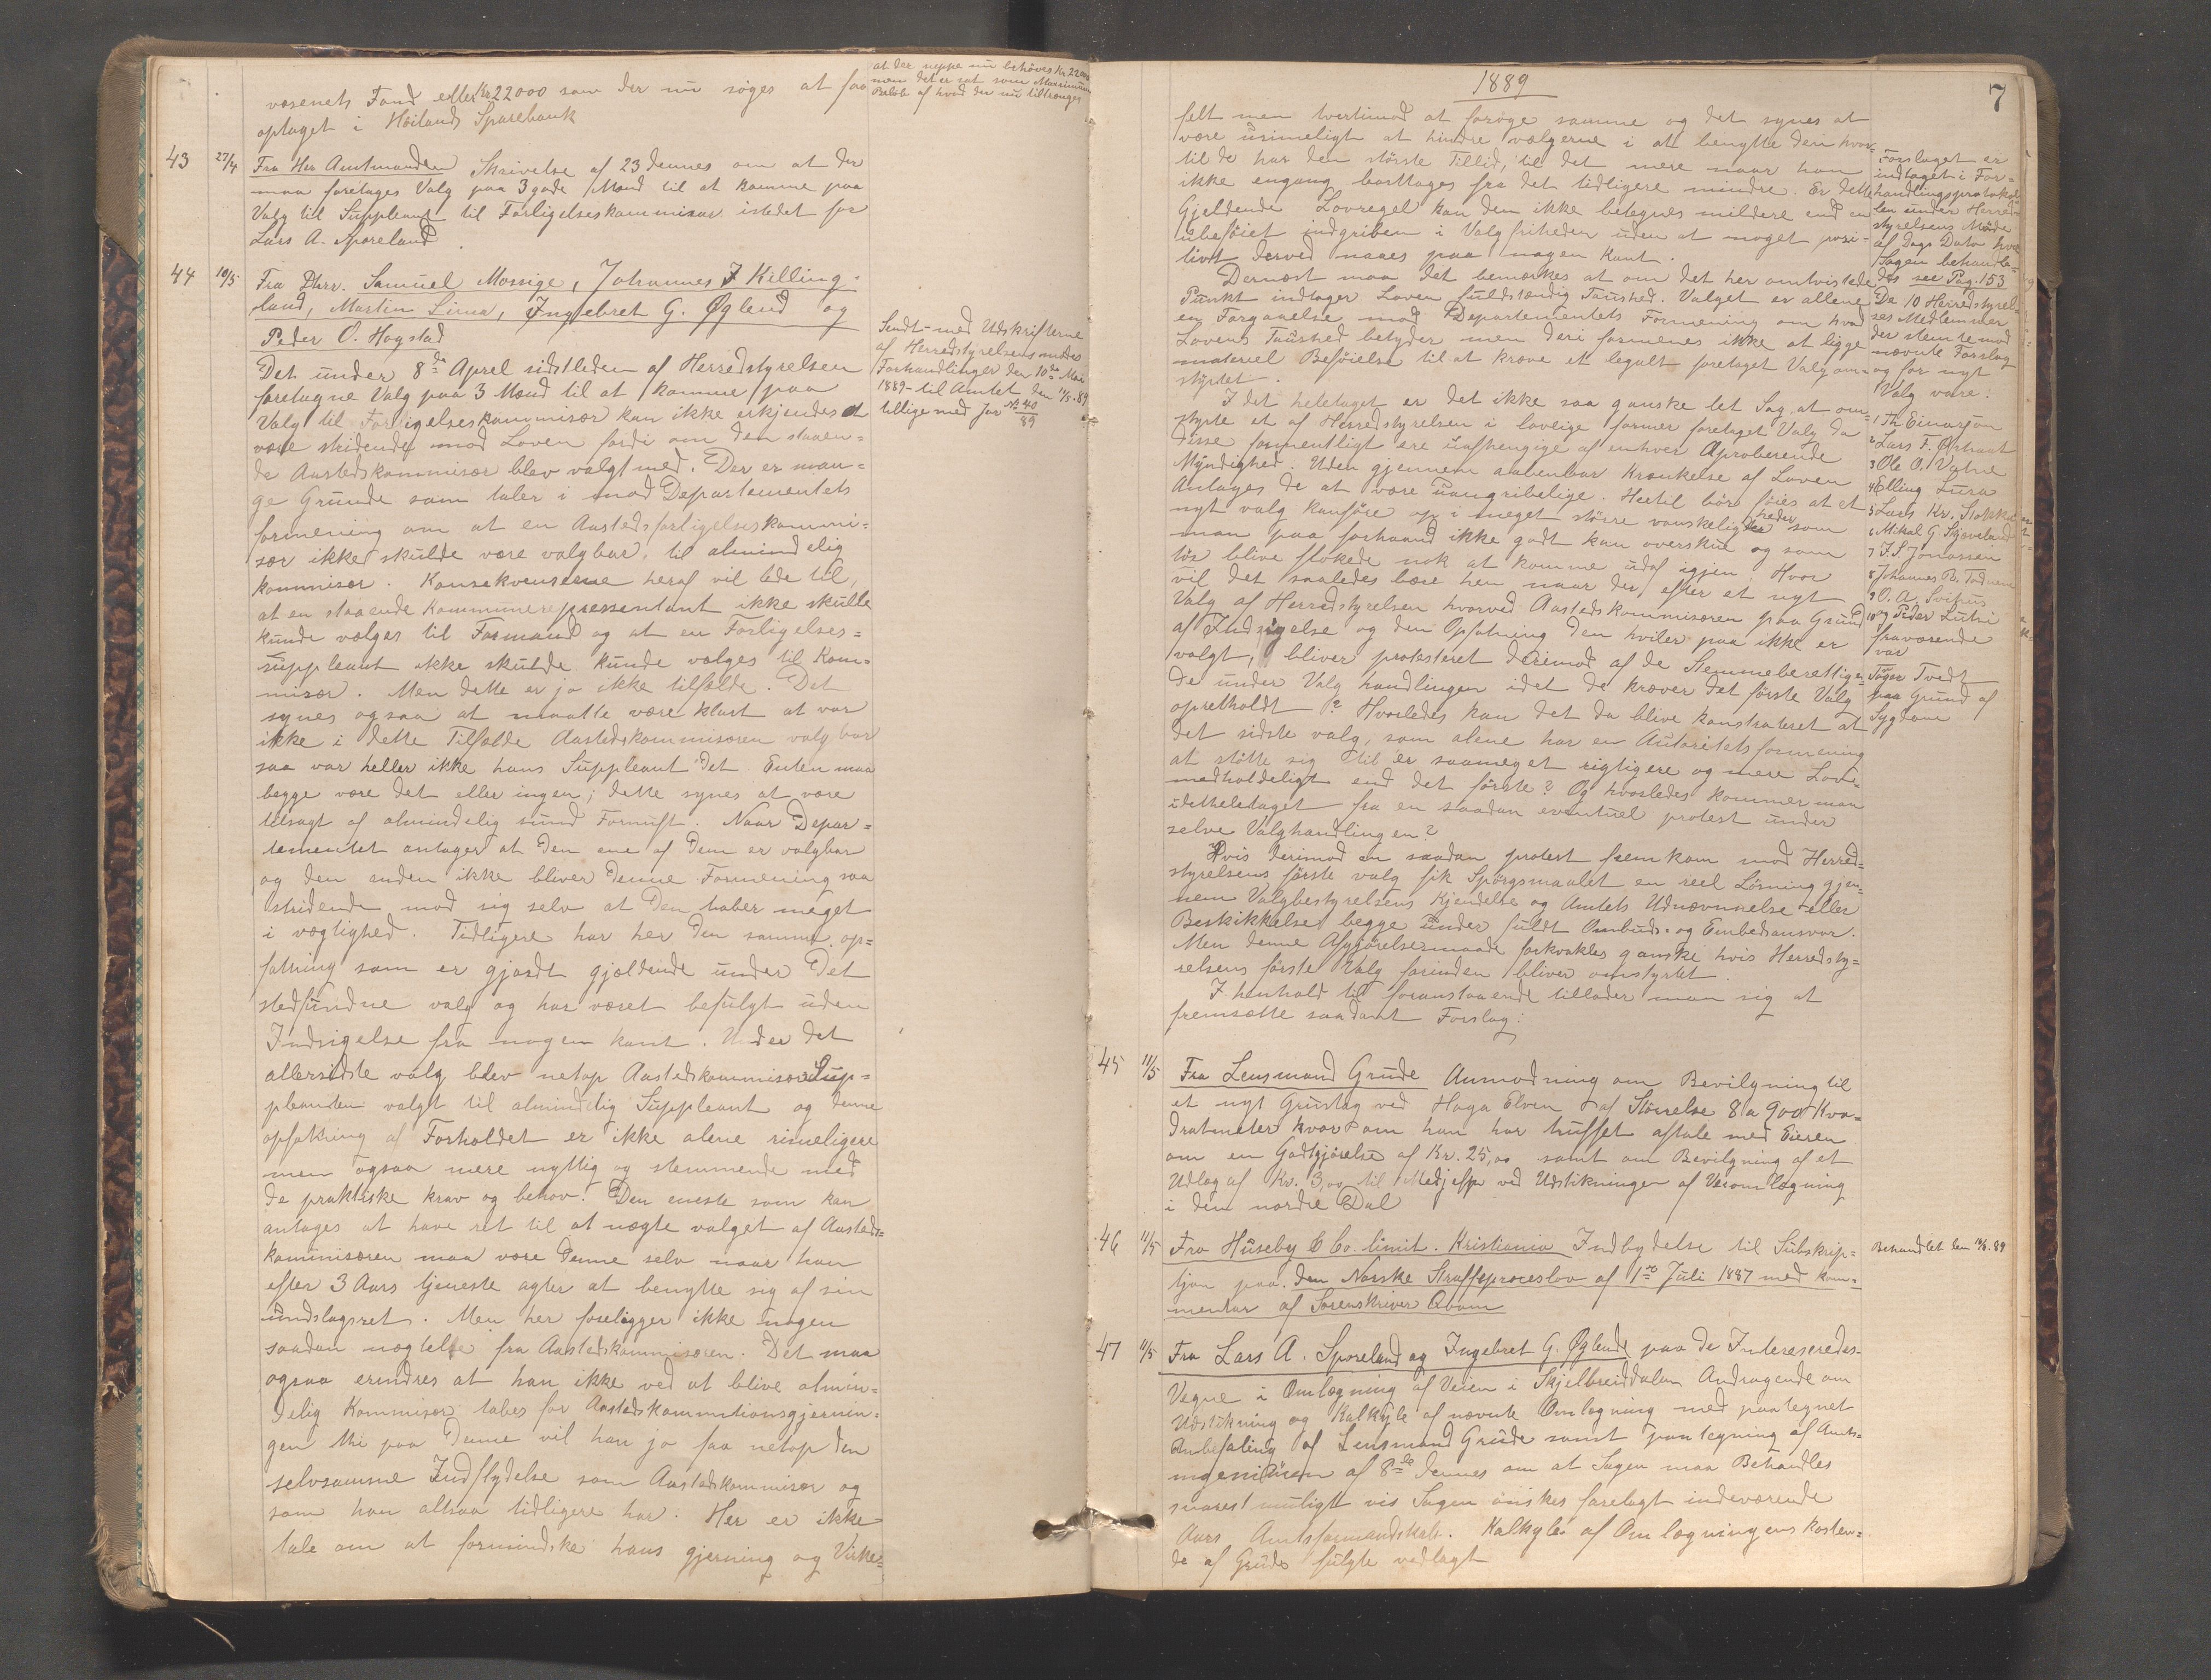 væsenets Fond eller Kr 22000 som der nu søges at faa
optaget i Høilands Sparebank
at der neppe nu behøves Kr 22000
men det er sat som Maximum
Beløb af hvad der nu tiltrænges
43 27/4 Fra Hr Amtmanden Skrivelse af 23 dennes om at der
maa foretages Valg paa 3 gode Mænd til at komme paa
Valg til Suppleant til Forligelseskommisær istedet for
Lars A. Sporeland.
44 10/5 Fra Dhrr. Samuel Mossige, Johannes J Killing-
land, Martin Lima, Ingebret G. Øglend og
Peder O. Hogstad
Det under 8de Aprel sidstleden af Herredstyrelsen
foretagne Valg paa 3 Mænd til at komme paa
Valg til Forligelseskommisær kan ikke erkjendes at
være stridende mod Loven fordi om den staaen-
de Aastedskommisær blev valgt med. Der er man-
ge Grunde som taler i mod Departementets
formening om at en Aastedsforligelseskommi-
sær ikke skulde være valgbar til almindelig
kommisær. Konsekvenserne heraf vil lede til,
at en staaende Kommunerepressentant ikke skulle
kunde vælges til Formand og at en Forligelses-
suppleant ikke skulde kunde vælges til Kom-
misær. Men dette er jo ikke tilfælde. Det
synes ogsaa at maatte være klart at var
ikke i dette Tilfælde Aastedskommisæren valgbar
saa var heller ikke hans Suppleant det. Enten maa
begge være det eller ingen; dette synes at være
tilsagt af almindelig sund Fornuft. Naar Depar-
tementet antager at den ene af dem er valgbar
og den anden ikke bliver denne Formening saa
stridende mod sig selv at den taber meget
i vægtighed. Tidligere har her den samme op-
fatning som er gjordt gjældende under det
stedfundne valg og har været befulgt uden
Indsigelse fra nogen kant. Under det
allersidste valg blev netop Aastedskommisær Sup-
pleanten valgt til almindelig Suppleant og denne
opfatning af Forholdet er ikke alene rimeligere
men ogsaa mere nyttig og stemmende med
de praktiske krav og behov. Den eneste som kan
antages at have ret til at nægte valget af Aasteds-
kommisæren maa være denne selv naar han
efter 3 Aars tjeneste agter at benytte sig af sin
undslagsret. Men her foreligger ikke nogen
saadan nægtelse fra Aastedskommisæren. Det maa
ogsaa erindres at han ikke ved at blive almin-
delig Kommisær tabes for Aastedskommitionsgjernin-
gen thi paa denne vil han jo faa netop den
selvsamme Indflydelse som Aastedskommisær og
som han altsaa tidligere har. Her er ikke
tale om at formindske hans gjerning og Virke-
Sendt med Udskrifterne
af Herredstyrelsens mødes
Forhandlinger den 10de Mai
1889 til Amtet den 11/5.89
tillige med Jor № 40/89
1889
7
felt men tvertimod at forøge samme og det synes at
være urimeligt at hindre vælgerne i at benytte den hvor-
til de har den største Tillid, til det mere naar han
ikke engang borttages fra det tidligere mindre. Er dette
Gjeldende Lovregel kan den ikke betegnes mildere end en
ubeføiet indgriben i Valgfriheden uden at noget posi-
tivt derved naaes paa nogen Kant.
Dernæst maa det bemærkes at om det her omtvistede
Punkt indtager Loven fuldstændig Taushed. Valget er allene
en Forgaaelse mod Departementets Formening om hvad
Lovens Taushed betyder men deri formenes ikke at ligge
materiel Beføielse til at kræve et legalt foretaget Valg om-
styrtet.
I det heletaget er det ikke saa ganske let Sag at om-
styrte et af Herredstyrelsen i lovlige former foretaget Valg da
disse formentligt ere uafhengige af enhver Aproberende
Myndighed. Uden gjennem aabenbar Krænkelse af Loven
Antages de at være uangribelige. Hertil bør føies at et
nyt valg kan føre op i meget større vanskeligheder som
man paa forhaand ikke godt kan overskue og som
tør blive flokede nok at komme udaf igjen. Hvor
vil det saaledes bære hen naar der efter et nyt
Valg af Herredstyrelsen hvorved Aastedskommisæren paa Grund
af Indsigelse og den Opfatning den hviler paa ikke er
valgt, bliver protesteret derimod af de Stemmeberettige-
de under Valghandlingen idet de kræver det første Valg
opretholdt? Hvorledes kan det da blive konstateret at
det sidste valg, som alene har en Autoritetsformening
at støtte sig til er saameget rigtigere og mere Lov-
medholdeligt end det første? Og hvorledes kommer man
udetheletaget fra en saadan eventuel protest under
selve Valghandlingen?
Hvis derimod en saadan protest fremkom mod Herred-
styrelsens første valg fik Spørgsmaalet en reel Løsning gjen-
nem Valgbestyrelsens Kjendelse og Amtets Udnævnnelse eller
Beskikkelse begge under fuldt Ombuds- og Embedsansvar.
Men denne Afgjørelsesmaade forkvakles ganske hvis Herredsty-
relsens første Valg forinden bliver omstyrtet.
I henhold til foranstaaende tillader man sig at
fremsætte saadant Forslag:
Forslaget er
indtaget i For-
handlingsprotokol-
len under Herred-
styrelsens Møde
af Dags Dato hvor
Sagen behandle-
des see Pag. 153
De 10 Herredstyrel-
ses Medlemmer
der stemte mod
nævnte Forslag
og for nyt
Valg vare:
1 Th. Einarsen
2 Lars F. Østraat
3 Ole O. Vatne
4 Elling Lura
5 Lars Kr. Stokke
6 Mikal G Skjæveland
7 J. S. Jonassen
8 Johannes R. Todnem
9 O. A. Svihus
10 og Peder Lutsi
fraværende
var
Tøger Tvedt
paa Grund af
Sygdom
45 11/5 Fra Lensmand Grude Anmodning om Bevilgning til
et nyt Grustag ved Haga Elven af Størrelse 8 a 900 Kva-
dratmeter hvorom han har truffet aftale med Eieren
om en Godtgjørelse af Kr. 25,00 samt om Bevilgning af et
Udlæg af Kr. 3,00 til Medhjelper ved Udstikningen af Veiomlægning
i den nordre Dal
46 11/5 Fra Huseby & Co. limit. Kristiania Indbydelse til Subskrip-
tjon paa den Norske Straffeproceslov af 1ste Juli 1887 med kom-
mentar af Sorenskriver Qvam
Behandlet den 11/5.89
47 11/5 Fra Lars A. Sporeland og Ingebret G. Øglend paa de Interesseredes
Vegne i Omlægning af Veien i Skjelbreiddalen Andragende om
Udstikning og Kalkyle af nævnte Omlægning med paategnet
Anbefaling af Lensmand Grude samt paategning af Amts-
ingeniøren af 8de dennes om at Sagen maa Behandles
snarest muligt vis Sagen ønskes forelagt indeværende
Aars Amtsformandskab. Kalkyle af Omlægningens kosten-
de af Grude fulgte vedlagt